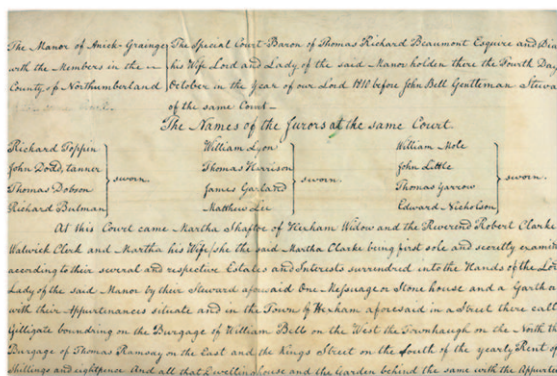 The Manor of Anick-Grainge The Special Court-Baron of Thomas Richard Beaumont Esquire and
with the Members in the his Wife Lord and Lady of the said Manor holden there the Fourth Day
County of Northumberland October in the Year of our Lord 1810 before John Bell Gentleman Stewa
of the same Court
The Names of the Jurors at the same Court.
Richard Toppin William Lyon William Mole
John Dodd, tanner Thomas Harrison John Little
sworn. sworn. sworn.
Thomas Dobson James Garland Thomas Yarrow
Richard Bulman Matthew Lee Edward Nicholson
At this Court came Martha Shaftoe of Hexham Widow and the Reverend Robert Clarke
Walwick Clerk and Martha his Wife (she the said Martha Clarke being first sole and secretly examin
according to their several and respective Estates and Interests surrendred into the Hands of the Lor
Lady of the said Manor by their Steward aforesaid One Messuage or Stone house and a Garth
with their Appurtenances situate and in the Town of Hexham aforesaid in a Street there call
Gilligate boundring on the Burgage of William Bell on the West the Townhaugh on the North th
Burgage of Thomas Ramsay on the East and the Kings Street on the South of the yearly Rent of
Shillings and eightpence And all that dwelling house and the Garden behind the same with the Appurten